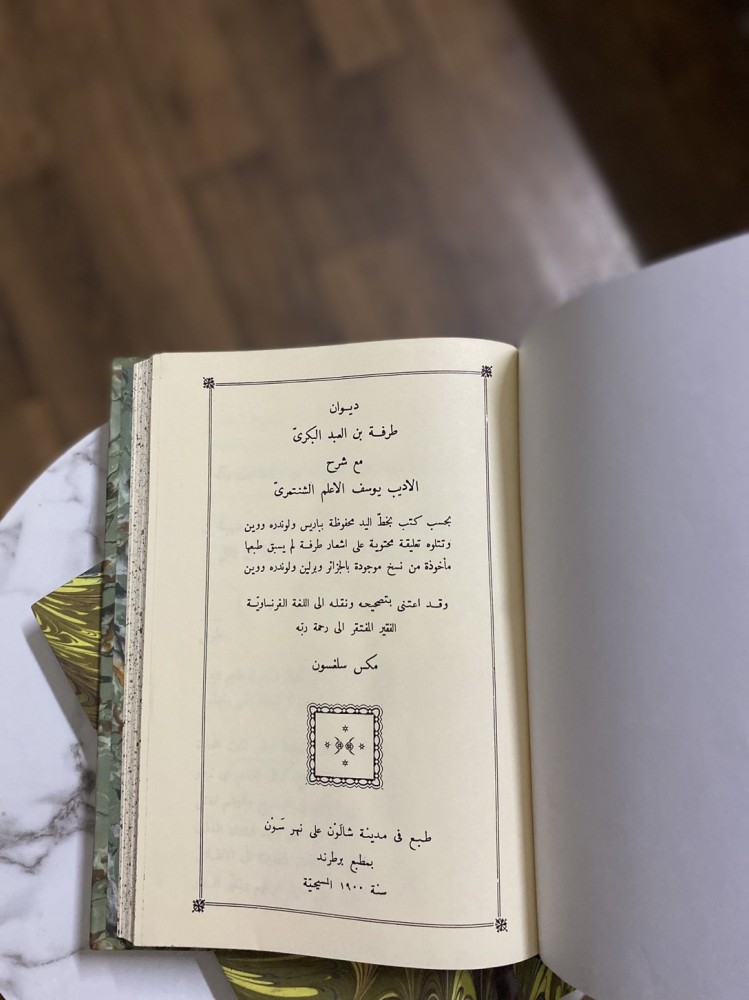 ديوان
طرفة بن العبد البكرىّ
مع شرح
الاديب يوسف الاعلم الشنتمرىّ
بحسب كتب بخطّ اليد محفوظة بباريس ولوندره ووين
وتتلوه تعليقة محتوية على اشعار طرفة لم يسبق طبعها
مأخوذة من نسخ موجودة بالجزائر وبرلين ولوندره ووين
وقد اعتنى بتصحيحه ونقله الى اللغة الفرنساويّة
الفقير المفتقر الى رحمة ربّه
مكس سلغسون
طبع فى مدينة شالَوْن على نهر سَوْن
بمطبع برطرند
سنة ١٩٠٠ المسيحيّة